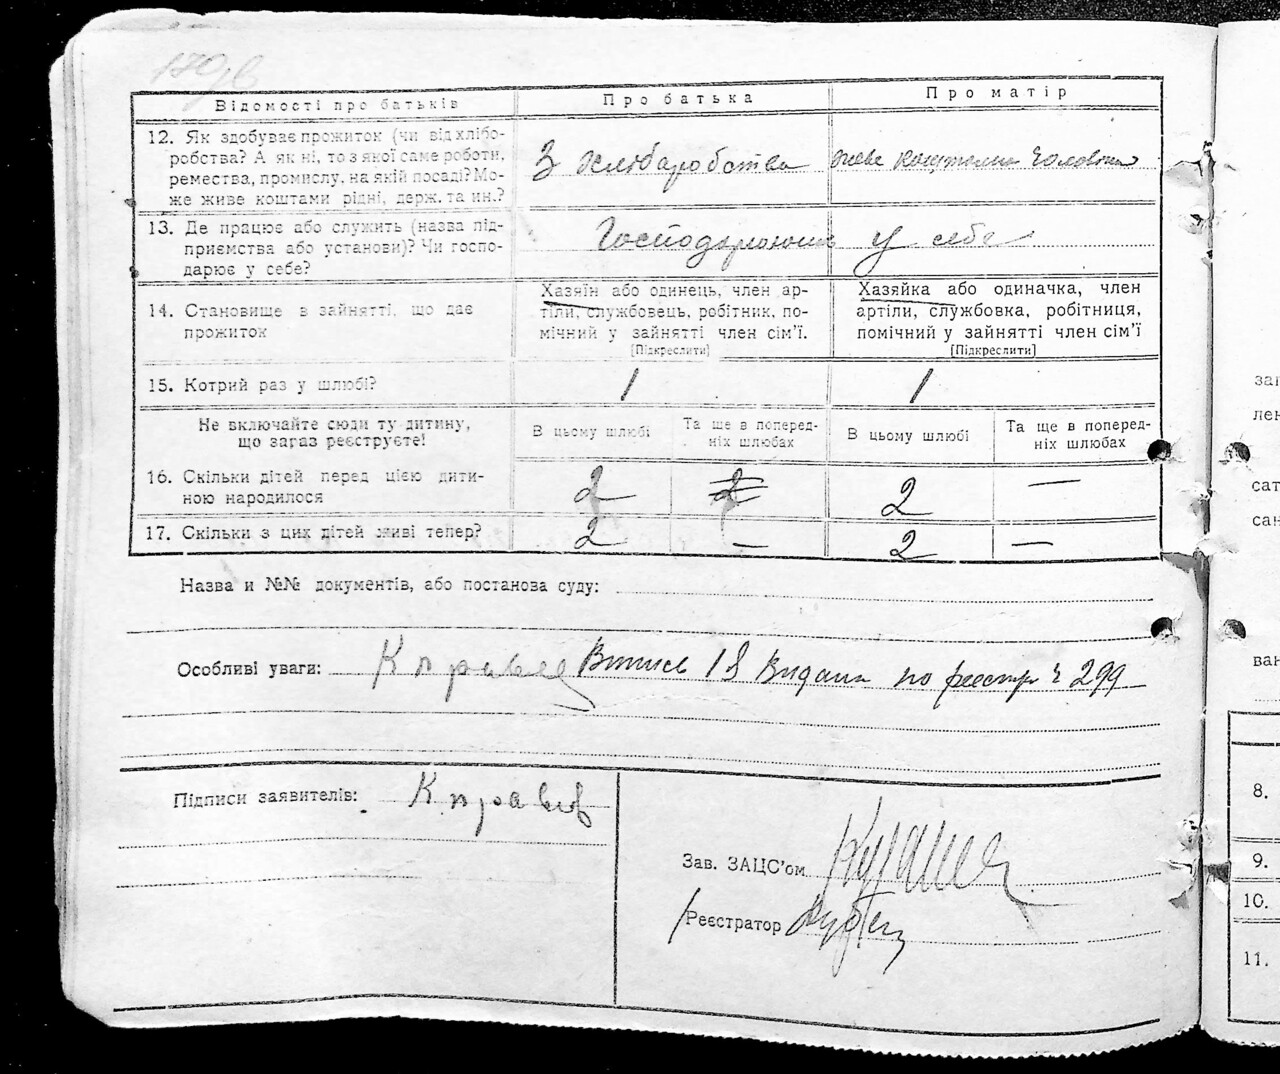 179 в
Відомості про батьків Про батька Про матір
12. Як здобуває прожиток (чи від хлібо-
робства? А як ні, то з якої саме роботи,
ремества, промислу, на якій посаді? Мо-
же живе коштами рідні, держ. та ин.?
З хлюбаробства
живе коштами чоловіка
13. Де працює або служить (назва під-
приємства або установи)? Чи госпо-
дарює у себе?
Господарюють у себе
14. Становище в зайнятті, що дає
прожиток
Хазяїн або одинець, член ар-
тіли, службовець, робітник, по-
мічний у зайнятті член сім'ї.
[Підкреслити]
Хазяйка або одиначка, член
артіли, службовка, робітниця,
помічний у зайнятті член сім'ї
[Підкреслити]
15. Котрий раз у шлюбі? 1 1
Не включайте сюди ту дитину,
що зараз реєструєте!
В цьому шлюбі
Та ще в поперед-
ніх шлюбах
В цьому шлюбі
Та ще в поперед-
ніх шлюбах
16. Скільки дітей перед цією дити-
ною народилося
2 2 2 —
17. Скільки з цих дітей живі тепер? 2 — 2 —
Назва и №№ документів, або постанова суду:
Особливі уваги: Випись Видана по реєстр ч 299
Підписи заявителів: К правев
Зав. ЗАЦС'ом
Реєстратор
заг
лен
сат
сан
ван
8.
9.
10.
11.